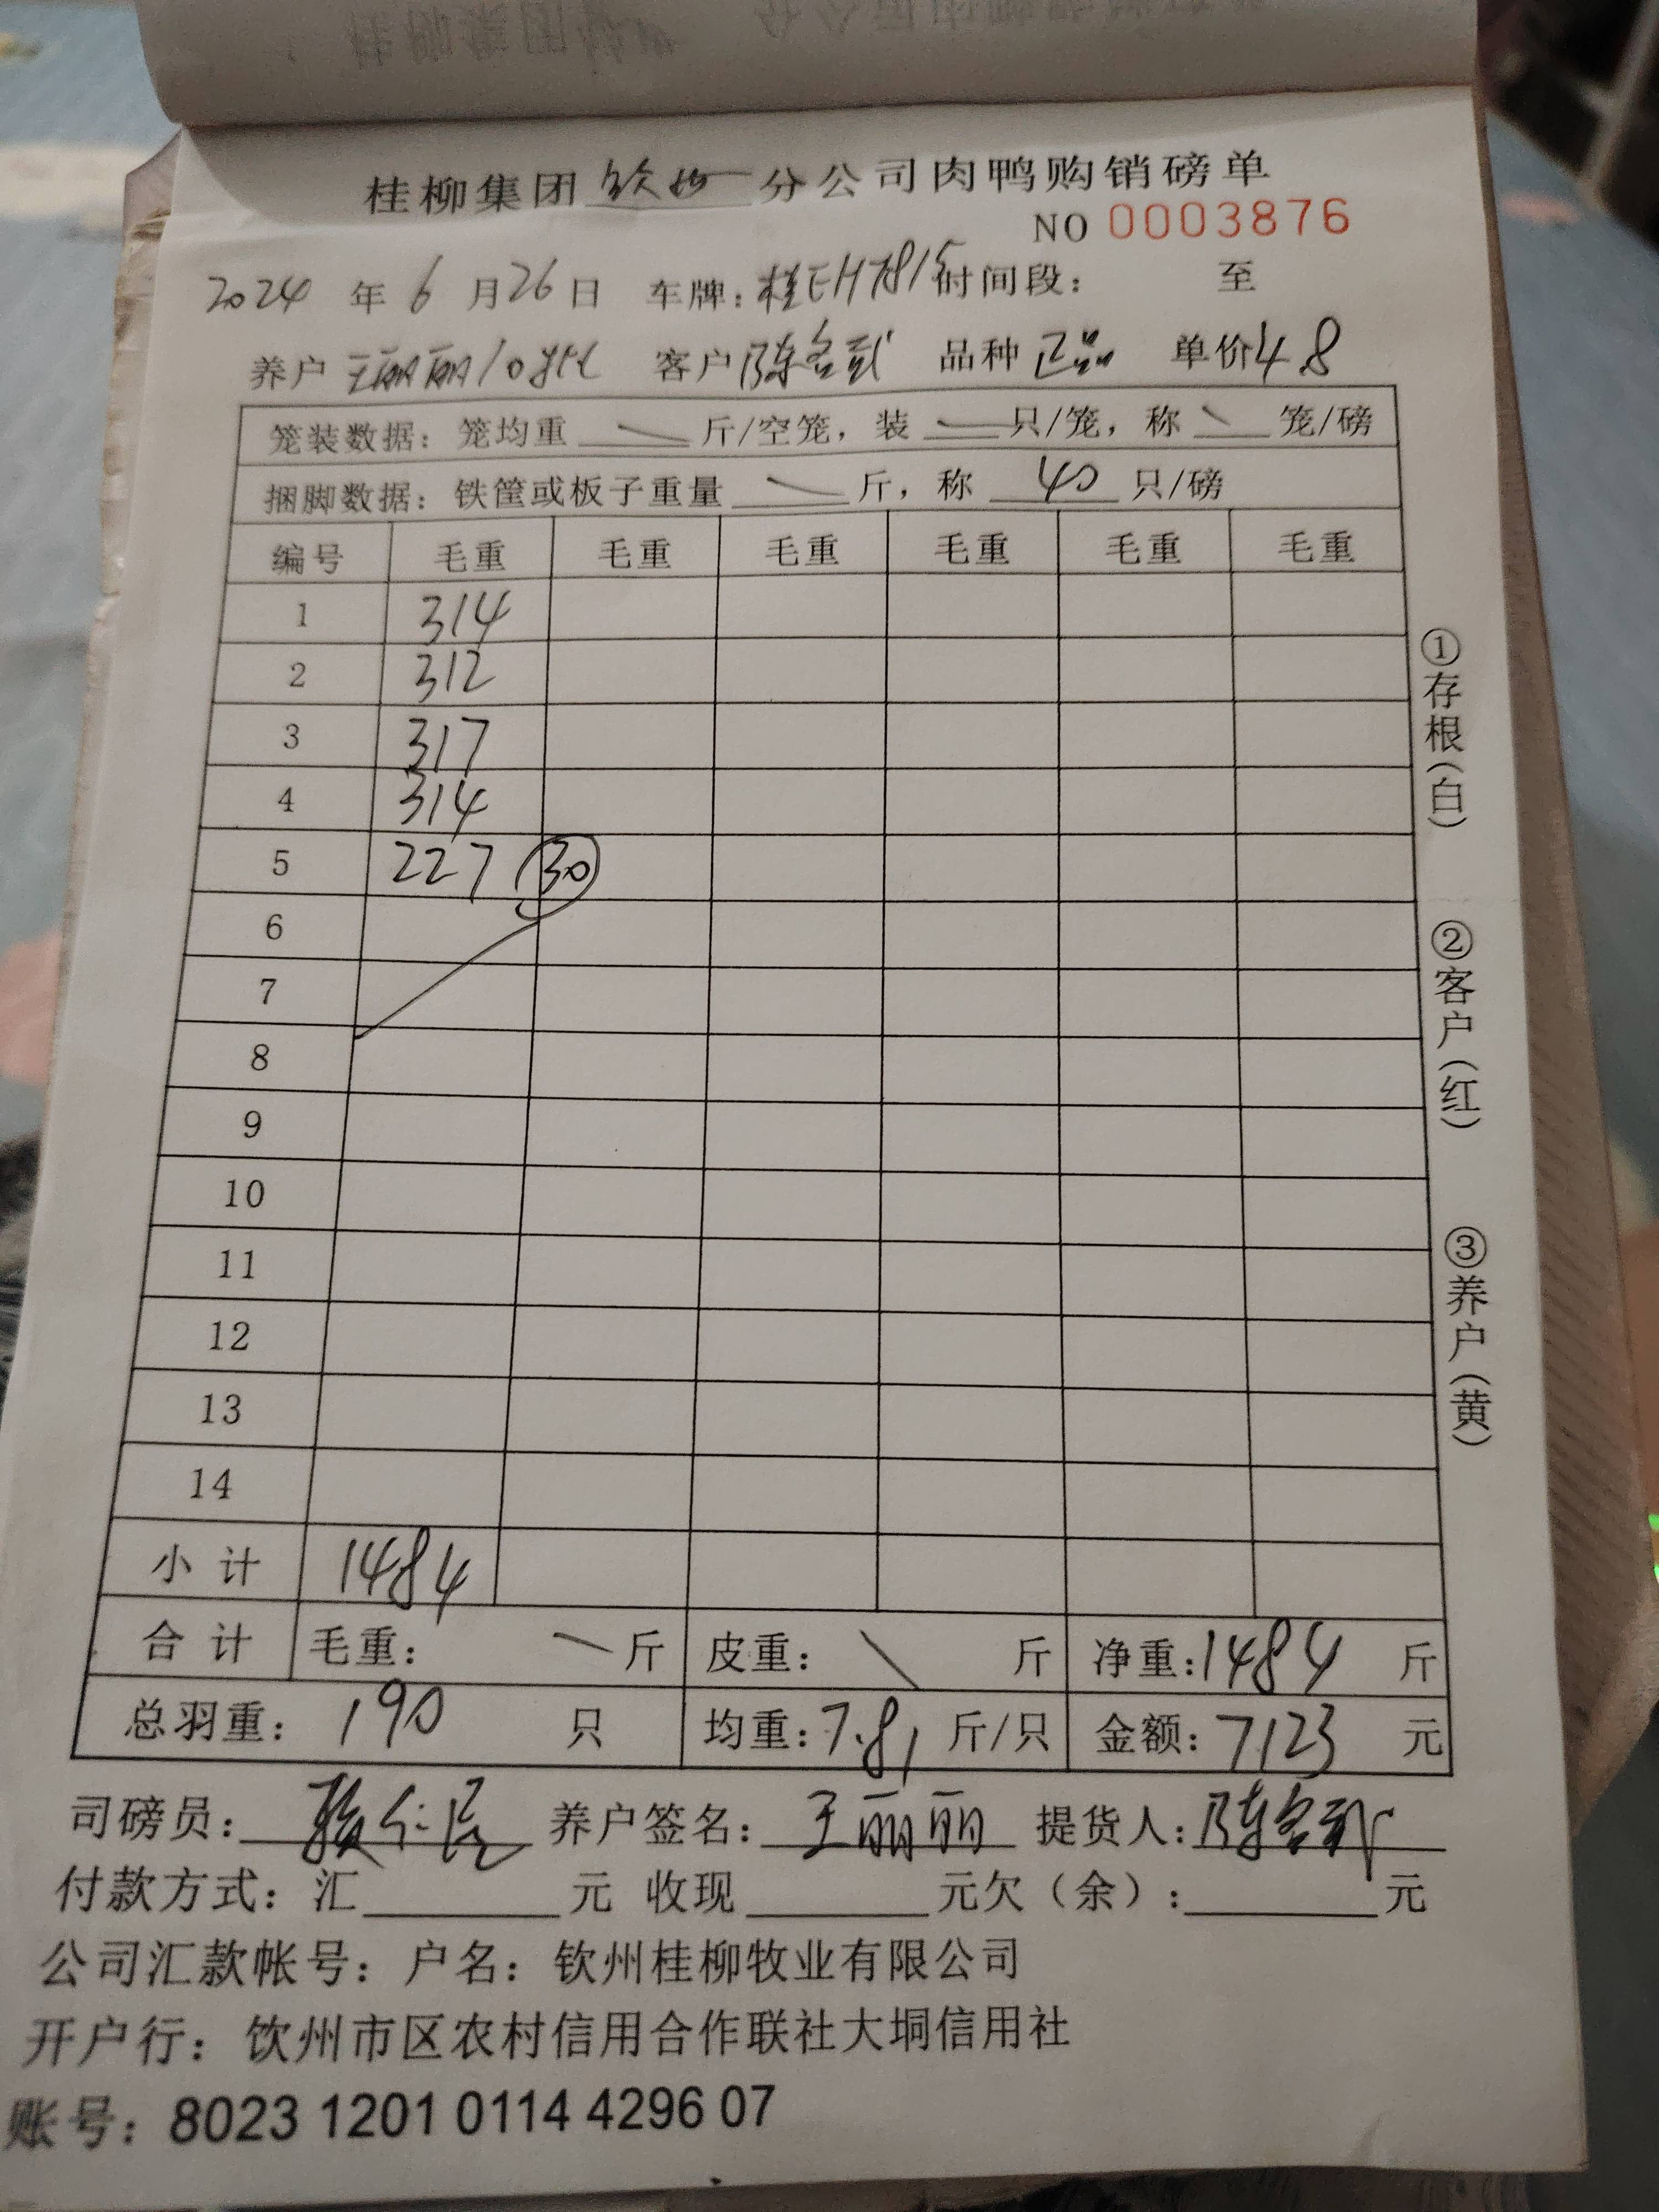 桂柳集团钦州分公司肉鸭购销磅单
NO 0003876
2024 年 6 月 26 日 车牌：桂EH7815 时间段： 至
养户 王丽丽10 客户 陈名武 品种 正品 单价 4.8
笼装数据：笼均重 斤/空笼，装 只/笼，称 笼/磅
捆脚数据：铁筐或板子重量 斤，称 40 只/磅
编号 毛重 毛重 毛重 毛重 毛重 毛重
1 314
2 312
3 317
4 314
5 227 30
6
7
8
9
10
11
12
13
14
小计 1484
合计 毛重： 斤 皮重： 斤 净重：1484 斤
总羽重：190 只 均重：7.81 斤/只 金额：7123 元
司磅员： 养户签名：王丽丽 提货人：陈名武
付款方式：汇 元 收现 元欠（余）： 元
公司汇款帐号：户名：钦州桂柳牧业有限公司
开户行：钦州市区农村信用合作联社大垌信用社
账号：8023 1201 0114 4296 07
①存根（白）
②客户（红）
③养户（黄）